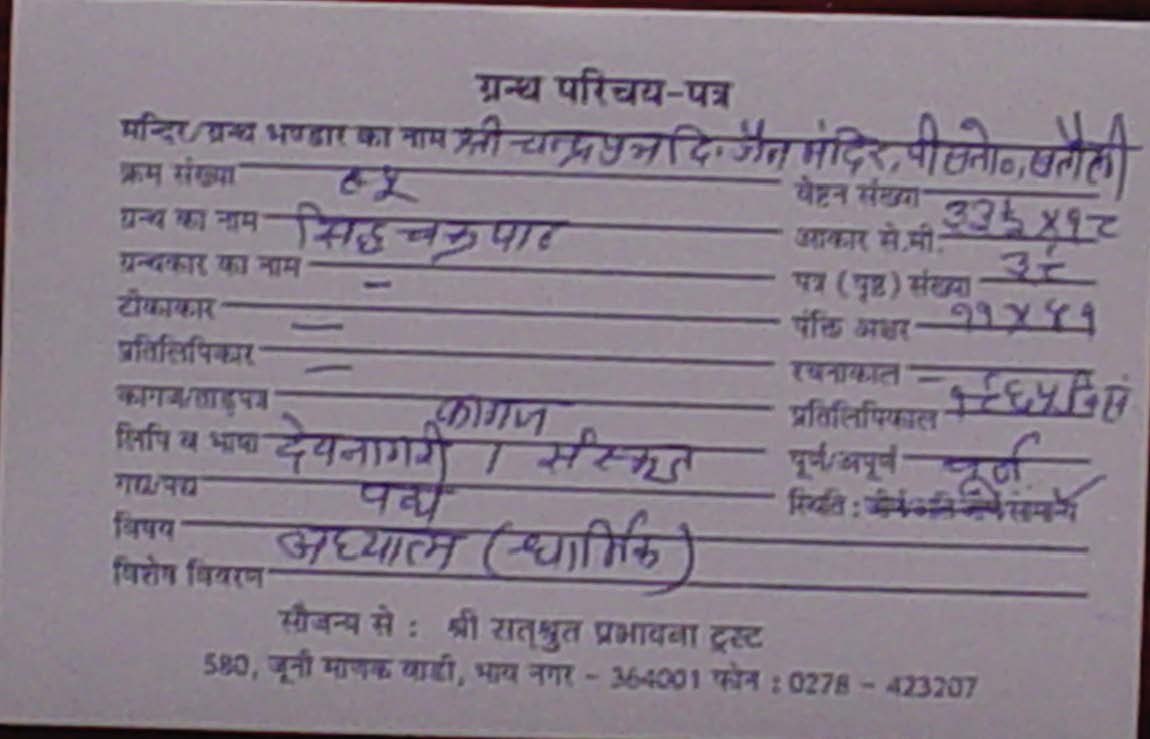 ग्रन्थ परिचय-पत्र
मन्दिर/ग्रन्थ भण्डार का नाम श्री चन्द्रप्रभ दि. जैन मंदिर, खतौली
क्रम संख्या
वेष्टन संख्या
ग्रन्थ का नाम सिद्धचक्र पाठ
आकार से.मी. ३३.५ X १८
ग्रन्थकार का नाम –
पत्र (पृष्ठ) संख्या ३८
टीकाकार —
पंक्ति अक्षर ११ X ४१
प्रतिलिपिकार —
रचनाकाल –
कागज/ताड़पत्र कागज
प्रतिलिपिकाल
लिपि व भाषा देवनागरी / संस्कृत
पूर्ण/अपूर्ण पूर्ण
गद्य/पद्य पद्य
स्थिति : सामान्य
विषय अध्यात्म (धार्मिक)
विशेष विवरण
सौजन्य से : श्री सत्श्रुत प्रभावना ट्रस्ट
580, जूनी माणक वाडी, भाव नगर - 364001 फोन : 0278 - 423207